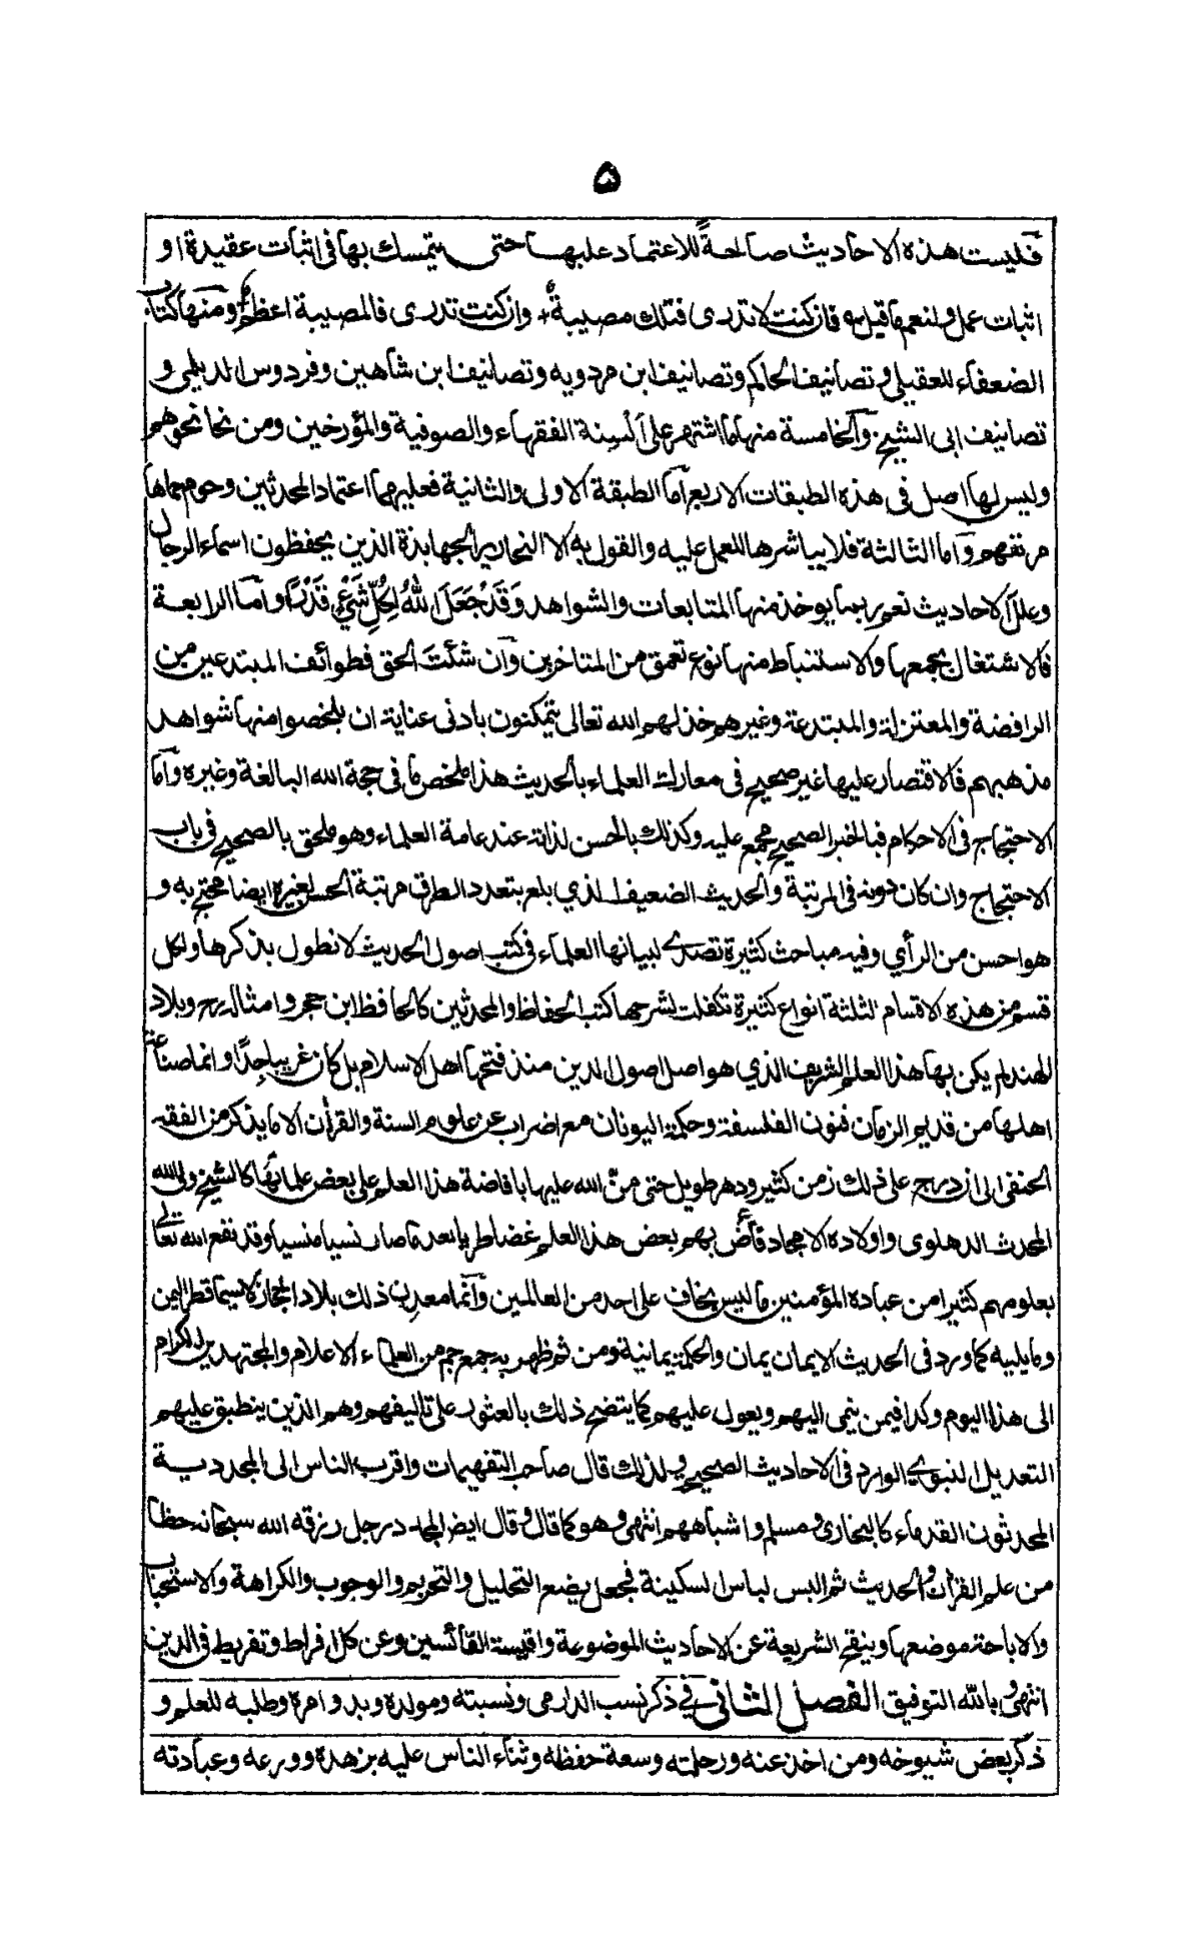 ۵
فليست هذه الاحاديث صالحةً للاعتماد عليها حتى يتمسك بها فى اثبات عقيدة او
اثبات عمل ولنعم ما قيل ٥ فان كنت لا تدرى فتلك مصيبةٌ ٭ وان كنت تدرى فالمصيبة اعظمُ ومنها كتاب
الضعفاء للعقيلى وتصانيف الحاكم وتصانيف ابن مردويه وتصانيف ابن شاهين وفردوس الديلمى و
تصانيف ابى الشيخ والخامسة منها ما اشتهر على ألسنة الفقهاء والصوفية والمؤرخين ومن نحا نحوهم
وليس لها اصل فى هذه الطبقات الاربع أما الطبقة الاولى والثانية فعليهما اعتماد المحدثين وحوم حماها
مرتعهم وأما الثالثة فلا يباشرها للعمل عليه والقول به الا النحارير الجهابذة الذين يحفظون اسماء الرجال
وعلل الاحاديث نعم ربما يوخذ منها المتابعات والشواهد وَقَدْ جَعَلَ اللهُ لِكُلِّ شَيْءٍ قَدْرًا وأما الرابعة
فالاشتغال بجمعها والاستنباط منها نوع تعمق من المتاخرين وأن شئت الحق فطوائف المبتدعين من
الرافضة والمعتزلة والمبتدعة وغيرهم خذلهم الله تعالى يتمكنون بادنى عناية ان يلخصوا منها شواهد
مذهبهم فالاقتصار عليها غير صحيح فى معارك العلماء بالحديث هذا ملخص ما فى حجة الله البالغة وغيره وأما
الاحتجاج فى الاحكام فبالخبر الصحيح مجمع عليه وكذلك بالحسن لذاته عند عامة العلماء وهو ملحق بالصحيح فى باب
الاحتجاج وان كان دونه فى المرتبة والحديث الضعيف الذي بلغ بتعدد الطرق مرتبة الحسن لغيره ايضا محتج به و
هو احسن من الرأي وفيه مباحث كثيرة تصدى لبيانها العلماء فى كتب اصول الحديث لا نطول بذكرها ولكل
قسم من هذه الاقسام الثلثة انواع كثيرة تكفلت لشرحها كتب الحفاظ والمحدثين كالحافظ ابن حجر وامثاله رح وبلاد
الهند لم يكن بها هذا العلم الشريف الذي هو اصل اصول الدين منذ فتحها اهل الاسلام بل كان غريبا جدًا وانما صناعة
اهلها من قديم الزمان فنون الفلسفة وحكمة اليونان مع اضراب عن علوم السنة والقرأن الا ما يذكر من الفقه
الحنفى الى ان درج على ذلك زمن كثير ودهر طويل حتى منّ الله عليها بافاضة هذا العلم على بعض علمائها كالشيخ ولى الله
المحدث الدهلوى واولاده الامجاد فأض بهم بعض هذا العلم غضا طريا بعد ما صار نسيا منسيا وقد نفع الله تعالى
بعلومهم كثيرا من عباده المؤمنين ما ليس بخاف على احد من العالمين وأنما معدن ذلك بلاد الحجاز لا سيما قطر اليمن
وما يليه كما ورد فى الحديث الايمان يمان والحكمة يمانية ومن ثم ظهر به جمع جم من العلماء الاعلام والمجتهدين الكرام
الى هذا اليوم وكذا فيمن ينمى اليهم ويعول عليهم كما يتضح ذلك بالعثور على تاليفهم وهم الذين ينطبق عليهم
التعديل النبوي الوارد فى الاحاديث الصحيحة ولذلك قال صاحب التفهيمات واقرب الناس الى المجددية
المحدثون القدماء كالبخارى ومسلم واشباههم انتهى وهو كما قال وقال ايضا المجدد رجل رزقه الله سبحانه حظا
من علم القرأن والحديث ثم البس لباس السكينة فجعل يضع التحليل والتحريم والوجوب والكراهة والاستحباب
والاباحة موضعها وينقح الشريعة عن الاحاديث الموضوعة واقيسة القائسين وعن كل افراط وتفريط فى الدين
انتهى وبالله التوفيق الفصل الثانى في ذكر نسب الدارمى ونسبته ومولده وبدو امره وطلبه للعلم و
ذكر بعض شيوخه ومن اخذ عنه ورحلته وسعة حفظه وثناء الناس عليه بزهده وورعه وعبادته